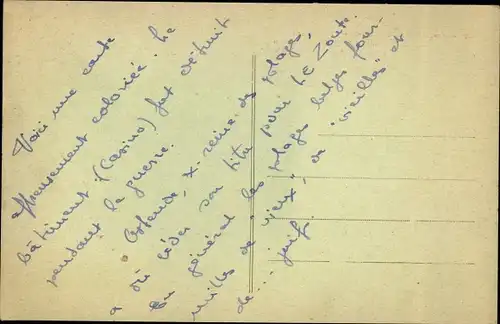 Voici une carte
affreusement coloriée. Le
bâtiment 1 (Casino) fut détruit
pendant la guerre.
Ostende, x reine des plages,
a dû céder son titre pour Le Zoute.
En général les plages belges four-
millent de "vieux", de "vieilles" et
de ... juif.